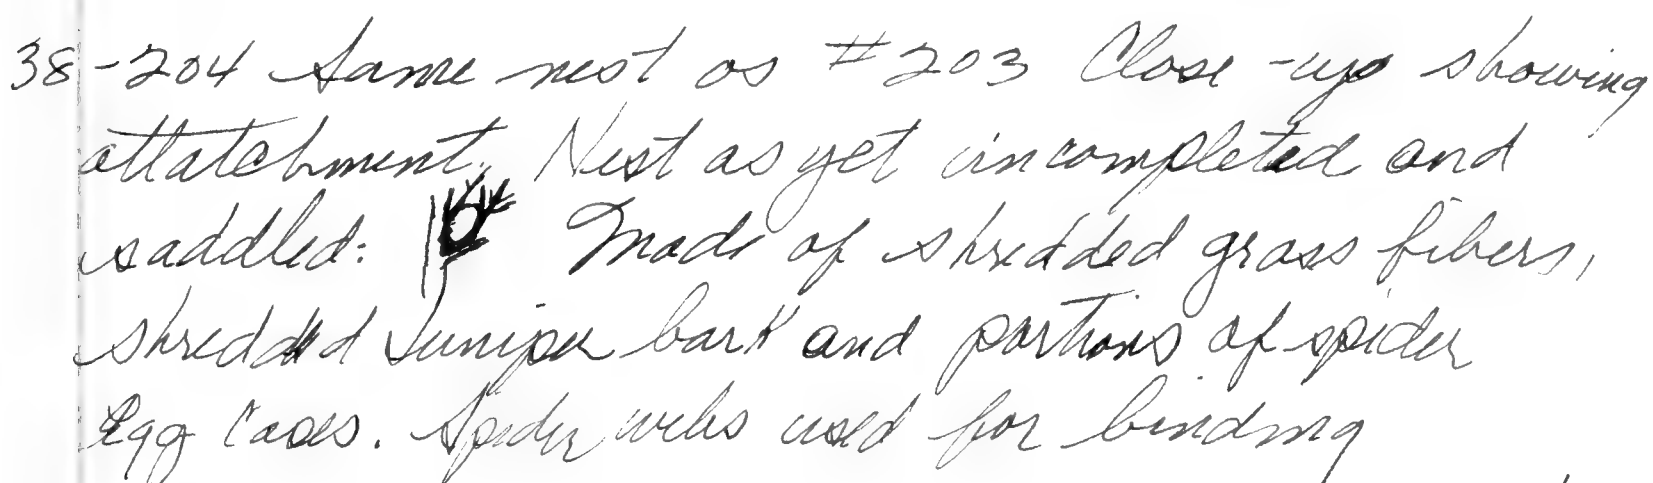 38-204 Same nest as #203 Close-up showing
attatchment. Nest as yet incompleted and
saddled: Made of shredded grass fibers,
shredded Juniper bark and portions of spider
Egg Cases. Spider webs used for binding